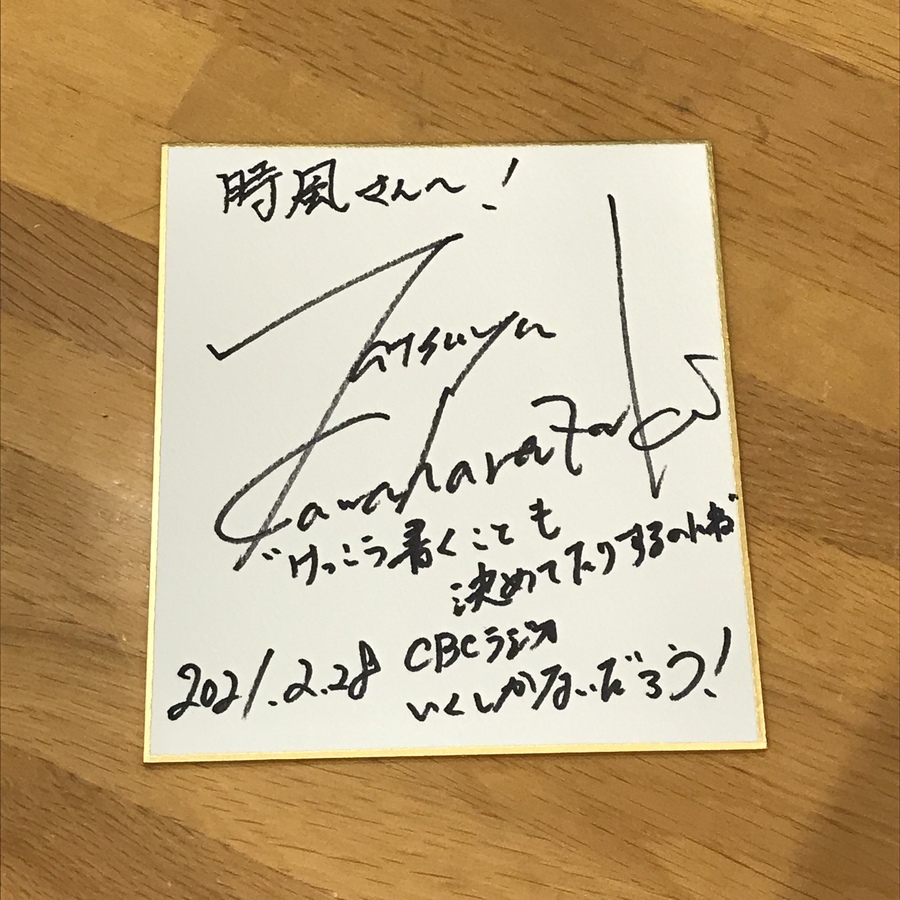 時風さんへ!
Tatsuya
Kawaharazaki
"けっこう書くことも
決めてたりするのね"
2021.2.28 CBCラジオ
いくしかないだろう!